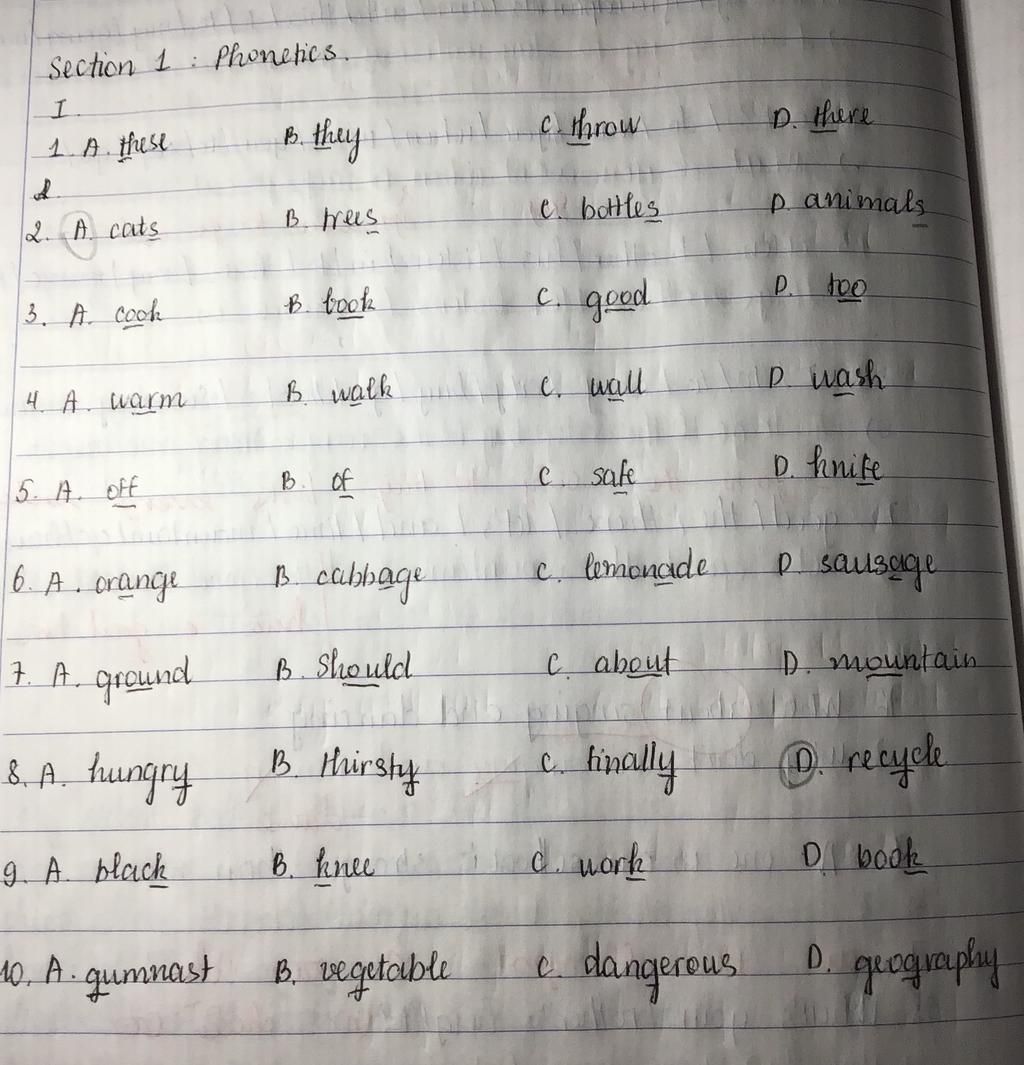 Section 1 : Phonetics.
I.
1. A. these B. they C. throw D. there
2. A. cats B. trees C. bottles D. animals
3. A. cook B. book C. good D. too
4. A. warm B. walk C. wall D. wash
5. A. off B. of C. safe D. knife
6. A. orange B. cabbage C. lemonade D. sausage
7. A. ground B. Should C. about D. mountain
8. A. hungry B. thirsty C. finally D. recycle
9. A. black B. knee C. work D. book
10. A. gumnast B. vegetable C. dangerous D. geography